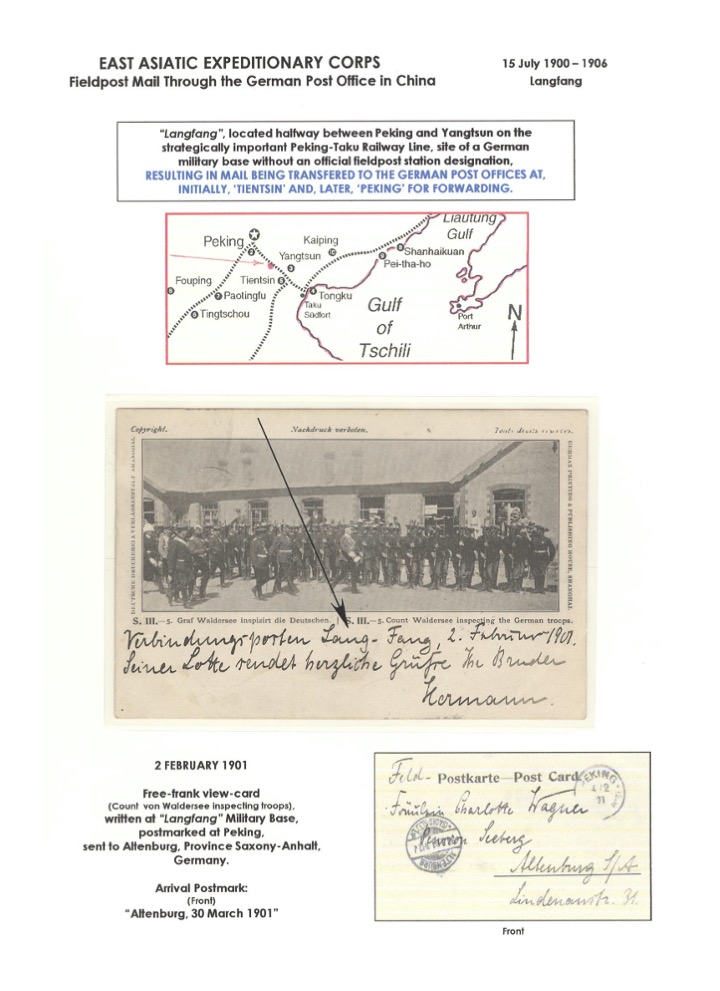 EAST ASIATIC EXPEDITIONARY CORPS
15 July 1900 – 1906
Fieldpost Mail Through the German Post Office in China
Langfang
"Langfang", located halfway between Peking and Yangtsun on the
strategically important Peking-Taku Railway Line, site of a German
military base without an official fieldpost station designation,
RESULTING IN MAIL BEING TRANSFERED TO THE GERMAN POST OFFICES AT,
INITIALLY, 'TIENTSIN' AND, LATER, 'PEKING' FOR FORWARDING.
Liautung
Gulf
Peking
Kaiping
Shanhaikuan
Yangtsun
Pei-tha-ho
Fouping
Tientsin
Paotingfu
Tongku
Taku
Südfort
Tingtschou
Gulf
of
Tschili
Port
Arthur
N
Copyright.
Nachdruck verboten.
Touts droits reservés.
DEUTSCHE DRUCKEREI & VERLAGSANSTALT SHANGHAI.
GERMAN PRINTING & PUBLISHING HOUSE, SHANGHAI.
S. III.—5. Graf Waldersee inspizirt die Deutschen. | S. III.—5. Count Waldersee inspecting the German troops.
Verbindungsposten Lang-Fang, 2. Februar 1901.
Seiner Lotte sendet herzliche Grüsse Ihr Bruder
Hermann.
2 FEBRUARY 1901
Free-frank view-card
(Count von Waldersee inspecting troops),
written at "Langfang" Military Base,
postmarked at Peking,
sent to Altenburg, Province Saxony-Anhalt,
Germany.
Arrival Postmark:
(Front)
"Altenburg, 30 March 1901"
Feld- Postkarte—Post Card
PEKING
4/2
Fräulein Charlotte Wagner
Pension Seeberg
ALTENBURG
Altenburg S/A
Lindenaustr. 31.
Front